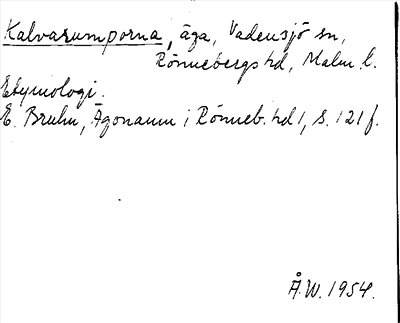 Kalvarumporna, äga, Vadensjö sn,
Rönnebergs hd, Malm. l.
Etymologi.
E. Bruhn, Ägonamn i Rönneb. hd 1, s. 121 f.
Å.W. 1954.